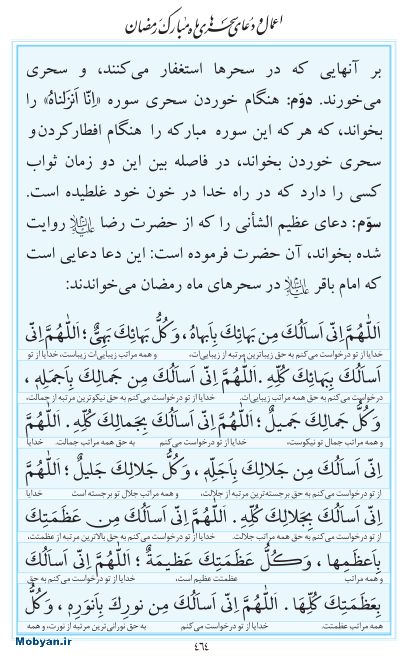 اعمال و دعای سحرهای ماه مبارک رمضان
بر آنهایی که در سحرها استغفار می‌کنند، و سحری
می‌خورند. دوّم: هنگام خوردن سحری سوره «اِنّا اَنزَلناهُ» را
بخواند، که هر که این سوره مبارکه را هنگام افطار کردن و
سحری خوردن بخواند، در فاصله بین این دو زمان ثواب
کسی را دارد که در راه خدا در خون خود غلطیده است.
سوّم: دعای عظیم الشأنی را که از حضرت رضا علیه‌السلام روایت
شده بخواند، آن حضرت فرموده است: این دعا دعایی است
که امام باقر علیه‌السلام در سحرهای ماه رمضان می‌خواندند:
اَللّٰهُمَّ اِنّى اَسأَلُكَ مِن بَهائِكَ بِاَبهاهُ، وَ كُلُّ بَهائِكَ بَهِىٌّ؛ اَللّٰهُمَّ اِنّى
خدایا از تو درخواست می‌کنم به حق زیباترین مرتبه از زیبایی‌ات، و همه مراتب زیبایی‌ات زیباست، خدایا از تو
اَسأَلُكَ بِبَهائِكَ كُلِّهِ. اَللّٰهُمَّ اِنّى اَسأَلُكَ مِن جَمالِكَ بِاَجمَلِهِ،
درخواست می‌کنم به حق همه مراتب زیبایی‌ات. خدایا از تو درخواست می‌کنم به حق نیکوترین مرتبه از جمالت،
وَ كُلُّ جَمالِكَ جَميلٌ؛ اَللّٰهُمَّ اِنّى اَسأَلُكَ بِجَمالِكَ كُلِّهِ. اَللّٰهُمَّ
و همه مراتب جمال تو نیکوست، خدایا از تو درخواست می‌کنم به حق همه مراتب جمالت. خدایا
اِنّى اَسأَلُكَ مِن جَلالِكَ بِاَجَلِّهِ، وَ كُلُّ جَلالِكَ جَليلٌ؛ اَللّٰهُمَّ
از تو درخواست می‌کنم به حق برجسته‌ترین مرتبه از جلالت، و همه مراتب جلال تو برجسته است خدایا
اِنّى اَسأَلُكَ بِجَلالِكَ كُلِّهِ. اَللّٰهُمَّ اِنّى اَسأَلُكَ مِن عَظَمَتِكَ
از تو درخواست می‌کنم به حق همه مراتب جلالت. خدایا از تو درخواست می‌کنم به حق بالاترین مرتبه از عظمتت،
بِاَعظَمِها، وَ كُلُّ عَظَمَتِكَ عَظيمَةٌ؛ اَللّٰهُمَّ اِنّى اَسأَلُكَ
و همه مراتب عظمتت عظیم است، خدایا از تو درخواست می‌کنم به حق
بِعَظَمَتِكَ كُلِّها. اَللّٰهُمَّ اِنّى اَسأَلُكَ مِن نورِكَ بِاَنوَرِهِ، وَ كُلُّ
همه مراتب عظمتت. خدایا از تو درخواست می‌کنم به حق نورانی‌ترین مرتبه از نورت، و همه
٤٦٤
Mobyan.ir